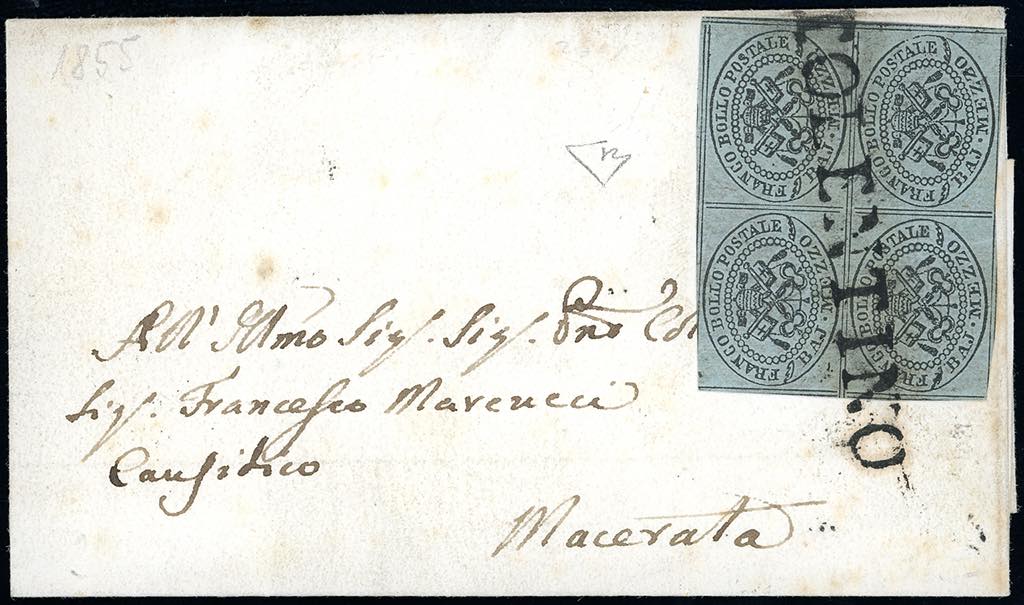 1855
FRANCO BOLLO POSTALE
BAJ. MEZZO
FRANCO BOLLO POSTALE
BAJ. MEZZO
FRANCO BOLLO POSTALE
BAJ. MEZZO
FRANCO BOLLO POSTALE
BAJ. MEZZO
TOLENTINO
All' Illmo Sig. Sig. Pne
Sig. Francesco Marcucci
Causidico
Macerata